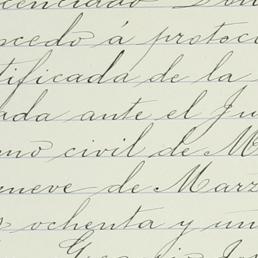 cenciado Don
ocedo á protoco
tificada de la
ada ante el Ju
mo civil de M
nueve de Marz
s ochenta y un